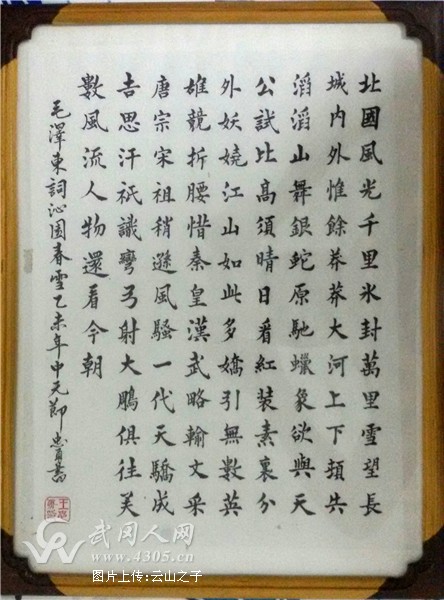 北國風光千里氷封萬里雪望長
城内外惟餘莽莽大河上下頓失
滔滔山舞銀蛇原馳蠟象欲與天
公試比高須晴日看紅裝素裹分
外妖嬈江山如此多嬌引無數英
雄競折腰惜秦皇漢武略輸文采
唐宗宋祖稍遜風騷一代天驕成
吉思汗祇識彎弓射大鵰俱往矣
數風流人物還看今朝
毛澤東詞沁園春雪乙未年中元節忠書
武冈人网
www.4305.cn
图片上传:云山之子